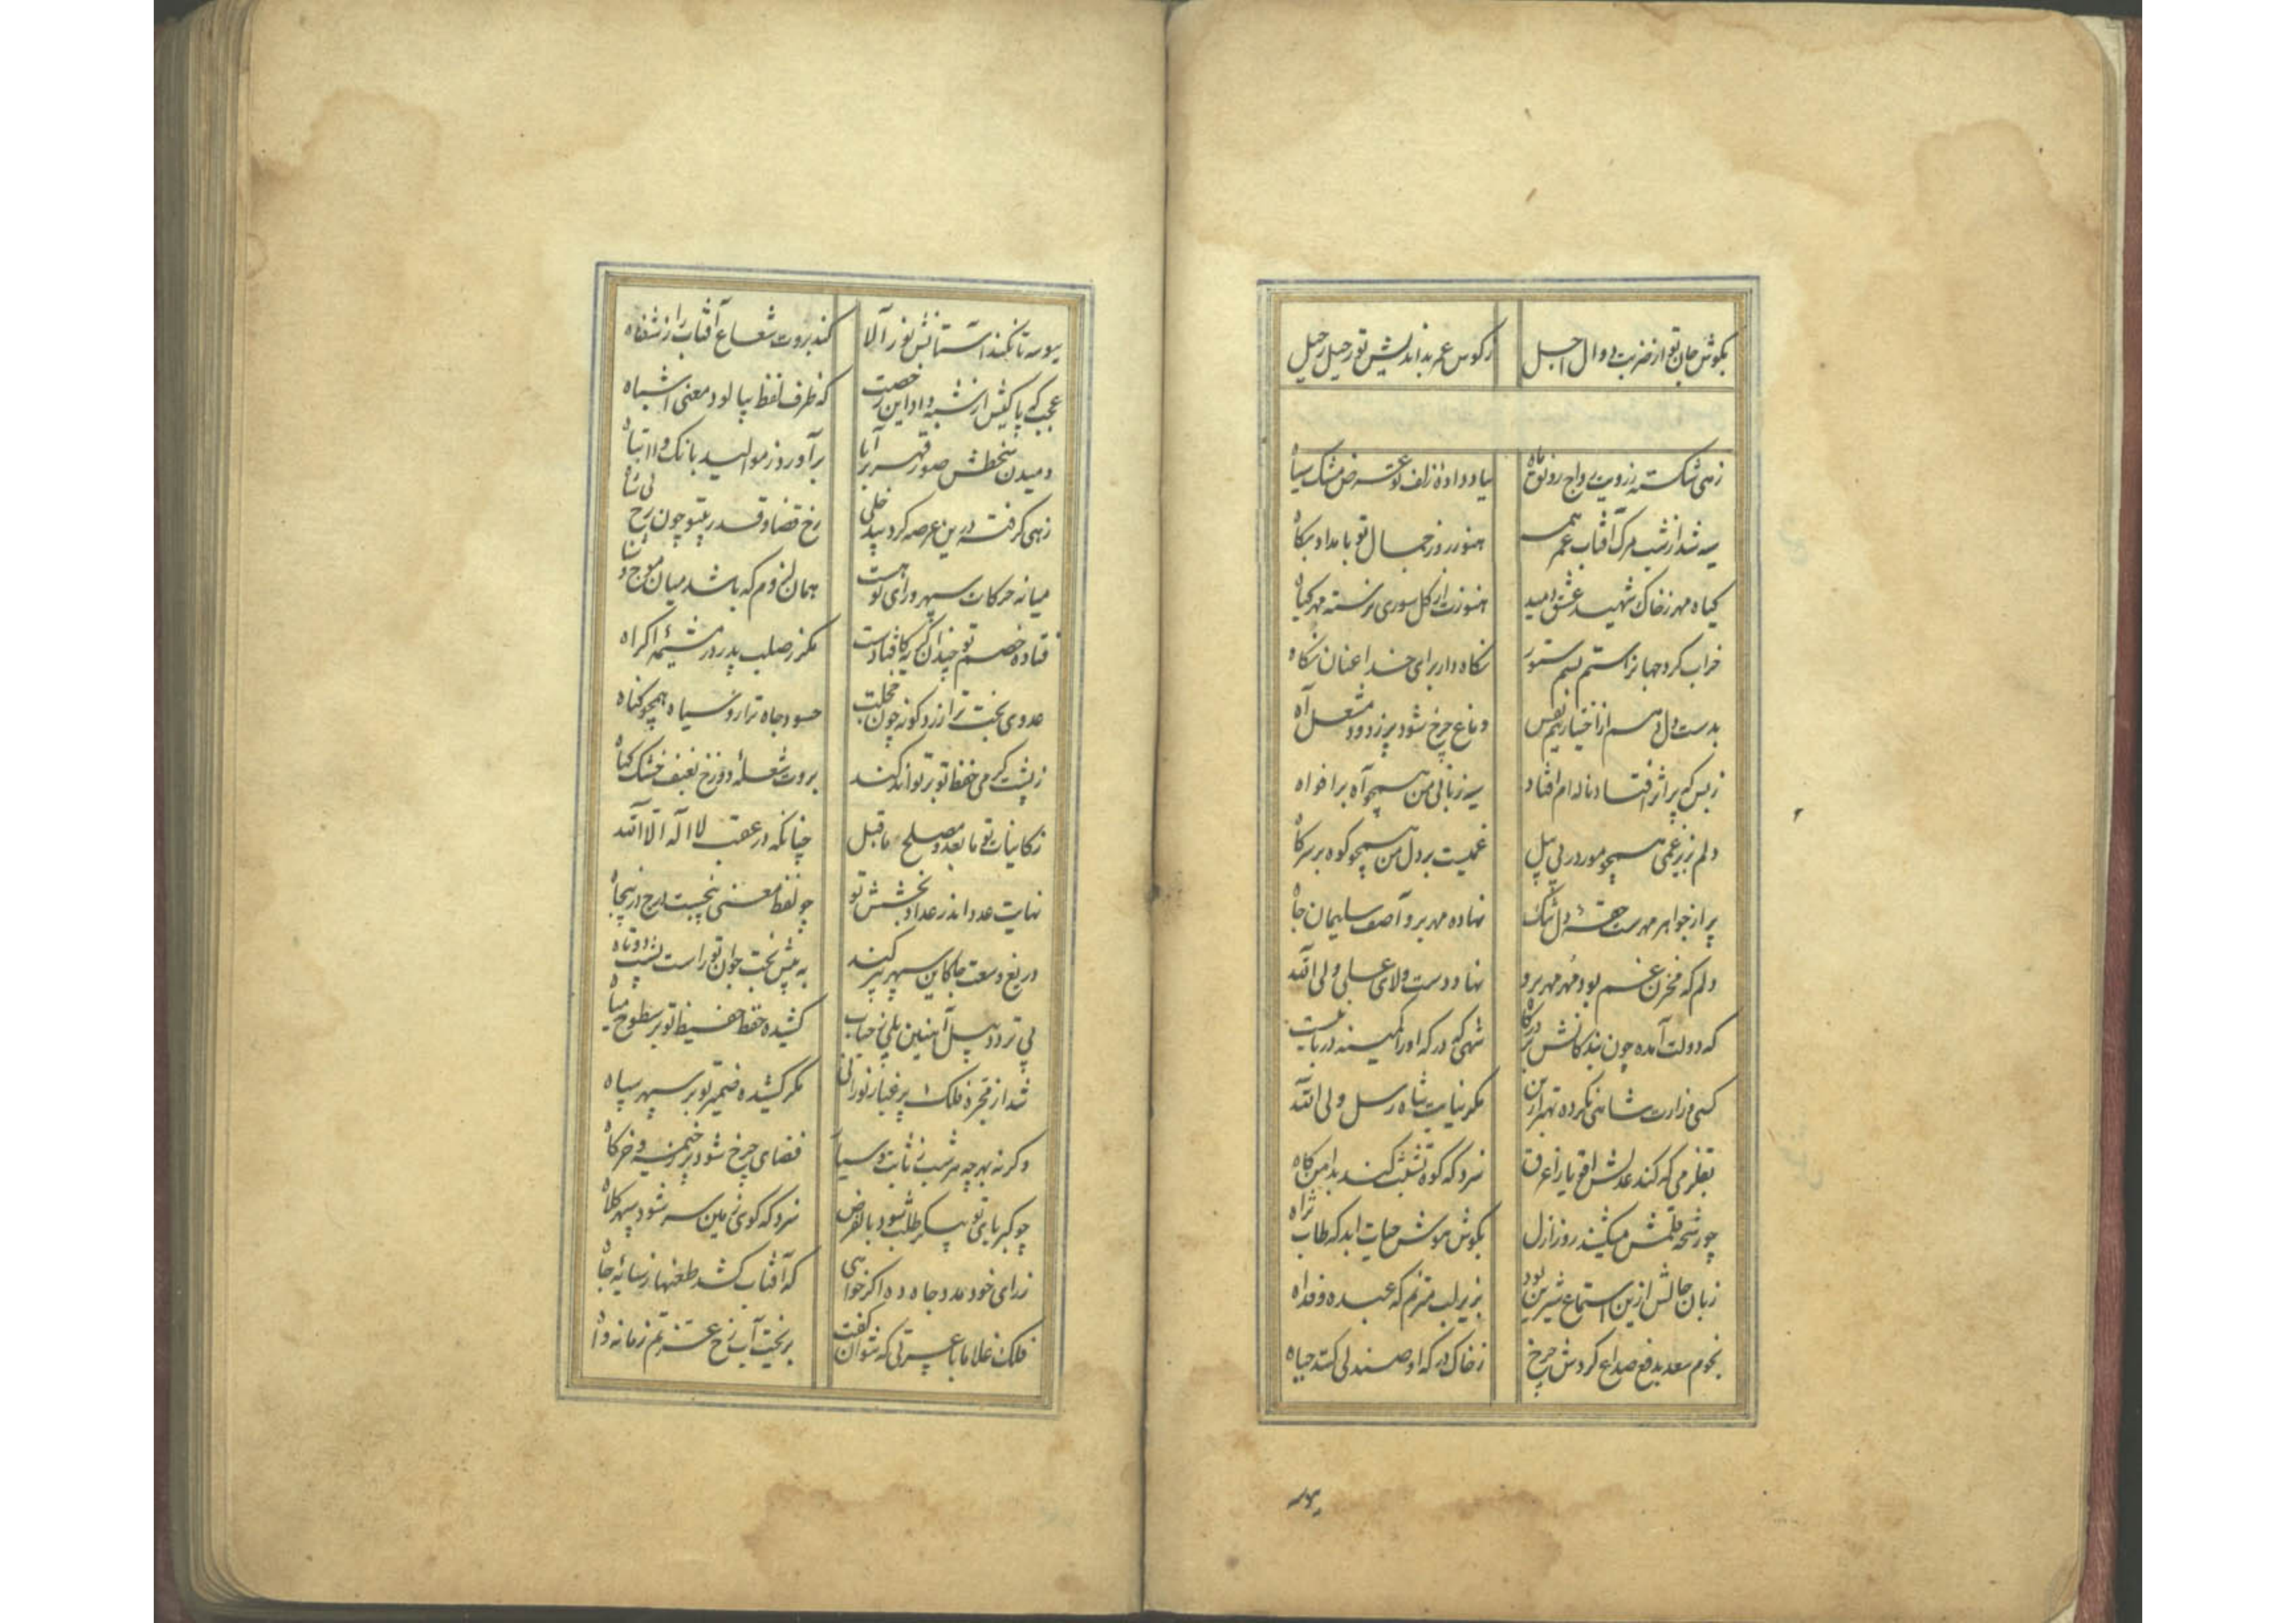 بکوش جان تو از ضربت دوال اجل    ز کوس عمر بداندیش تو رحیل رحیل
زهی شکسته ز رویت رواج رونق ماه    بباد داده زلف تو عرض مشک سیاه
سیه شد از شب مرک آفتاب عمر همه    هنوز روز جمال تو بامداد بکاه
کیاه مهر ز خاک شهید عشق دمید    هنوزت از کل سوری نرسته مهر کیاه
خراب کرد جهانرا ستم بسم ستور    نکاه دار برای خدا عنان نکاه
بدست دل دهم از اختیار نیم نفس    دماغ چرخ شود پر ز دود مشعل آه
ز بس که پر اثر افتاد ناله‌ام افتاد    سیه زبانی من همچو آه بر افواه
دلم بزیر غمی همچو مور در پی پیل    غمیست بر دل من همچو کوه بر سر کاه
پر از جواهر مهرست حقهٔ دل تنک    نهاده مهر برو آصف سلیمان جاه
دلم که مخزن غم بود مهر مهر برو    نهاد دست ولای علی ولی الله
که دولت آمده چون بندکانش بر درکاه    شهی که درکه او را کمینه دربانیست
کسی وزارت شاهی نکرده بهتر ازین    مکر نیابت شاه رسل ولی الله
بفلزمی که کند عدلش اقویا را غرق    سزد که کوه تشبث کند بدامن کاه
چو رشحهٔ قلمش میکشید روز ازل    بکوش هوش حیات ابد که طاب ثراه
زبان حالش ازین استماع شیرین بود    بزیر لب مترنم که عبده و فداه
نجوم سعد بدفع صداع کردش چرخ    ز خاک درکه او صندلی کشد جباه
بوسه
بوسه تا نکند آستانش نور آلا    کند بروت شعاع آفتاب را ز شفاه
عجب که پاکیش از شبه داد این رخصت    که ظرف لفظ بیالود معنی اشباه
دمیدن خطش صور قهر بر آبا    برآورد ز موالید بانک وا ابتاه
زهی کرفته درین عرصه کرد بید خلی    رخ قضا و قدر پیتو چون رخ بی شاه
میانه حرکات سپهر و رای تو هست    همان لزوم که باشد میان موج و شناه
فتاده خصم تو چندان کریه کافتادست    مکر ز صلب پدر در مشیمه اکراه
عدوی بخت ترا زرد کونه چون خجلت    حسود جاه ترا رو سیاه همچو کناه
ز پشت کرمی حفظ تو بر تواند کند    بروت شعلهٔ دوزخ بعنف خشک کیاه
ز کاینات تو ما بعد و مصلح ما قبل    چنانکه در عقب لا اله الا الله
نهایت عدد اندر عداد بخشش تو    چو لفظ معنی پنجست درج در پنجاه
دریغ وسعت جا کاین سپهر پیر کند    به پیش بخت جوان تو راست پشت دوتاه
پی تردد پیل آهنین پلی ز حباب    کشیده حفظ حفیظ تو بر سطوح میاه
شد از مجره فلک پر غبار نورانی    مکر کشیده ضمیر تو بر سپهر سپاه
وکرنه بهر چه هر شب ز ثابت و سیار    فضای چرخ شود پر ز خیمه و خرکاه
چو کبریای تو پیکر طلب شود بالفرض    سزد که کوی زمین سر شود سپهر کلاه
ز رای خود مدد جاه ده اکر خواهی    که آفتاب کشد طعنها ز سایهٔ جاه
فلک غلاما با عسرتی که نتوان کفت    بریخت آب رخ عزتم زمانه واه